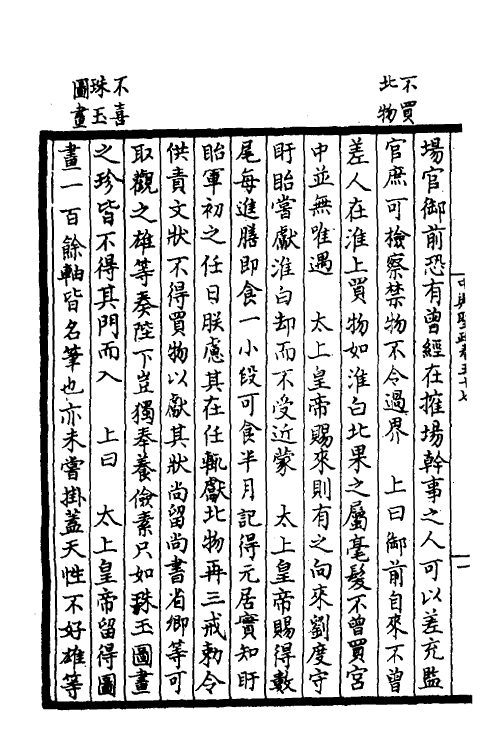 不買
北物
場官御前恐有曾經在搉場幹事之人可以差充監
官庶可檢察禁物不令過界　上曰御前自來不曾
差人在淮上買物如淮白北果之屬毫髮不曾買宮
中並無唯遇　太上皇帝賜來則有之向來劉度守
盱眙嘗獻淮白却而不受近蒙　太上皇帝賜得數
尾每進膳即食一小段可食半月記得元居實知盱
眙軍初之任日朕慮其在任輒獻北物再三戒勅令
供責文狀不得買物以獻其狀尚留尚書省卿等可
取觀之雄等奏陛下豈獨奉養儉素只如珠玉圖畫
不喜
珠玉
圖畫
之珍皆不得其門而入　上曰　太上皇帝留得圖
畫一百餘軸皆名筆也亦未嘗掛蓋天性不好雄等
中興聖政卷五十七